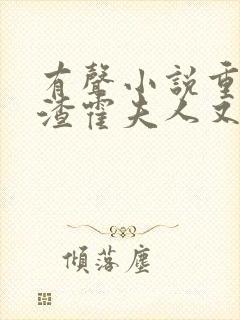 有聲小說重
渣霍夫人又
傾落塵